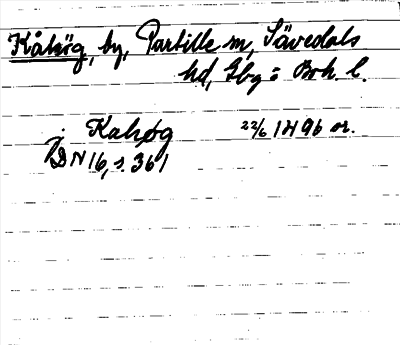 Kåhög, by, Partille sn, Sävedals
hd, Gbg o Boh. l.
i Kahøg 22/6 1496 or.
DN 16, s. 361